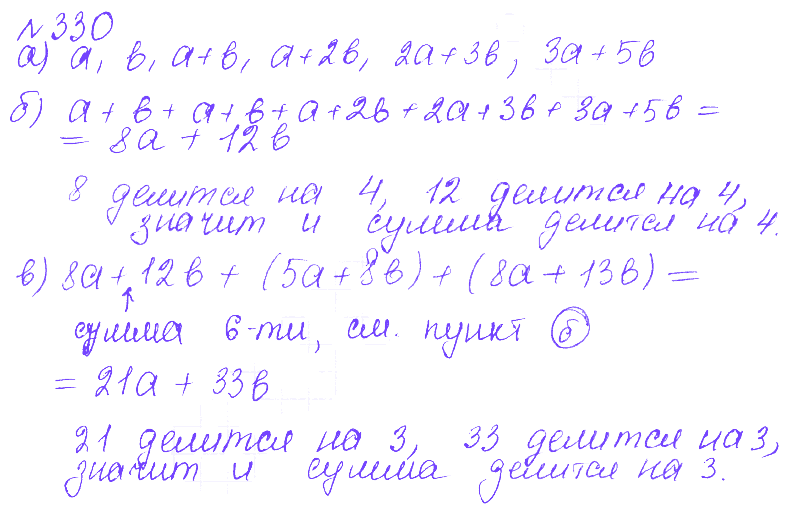 №330
а) а, в, а+в, а+2в, 2а+3в, 3а+5в
б) а+в+а+в+а+2в+2а+3в+3а+5в=
= 8а + 12в
8 делится на 4, 12 делится на 4,
значит и сумма делится на 4.
в) 8а+12в+(5а+8в)+(8а+13в)=
↑
сумма 6-ти, см. пункт б
= 21а + 33в
21 делится на 3, 33 делится на 3,
значит и сумма делится на 3.